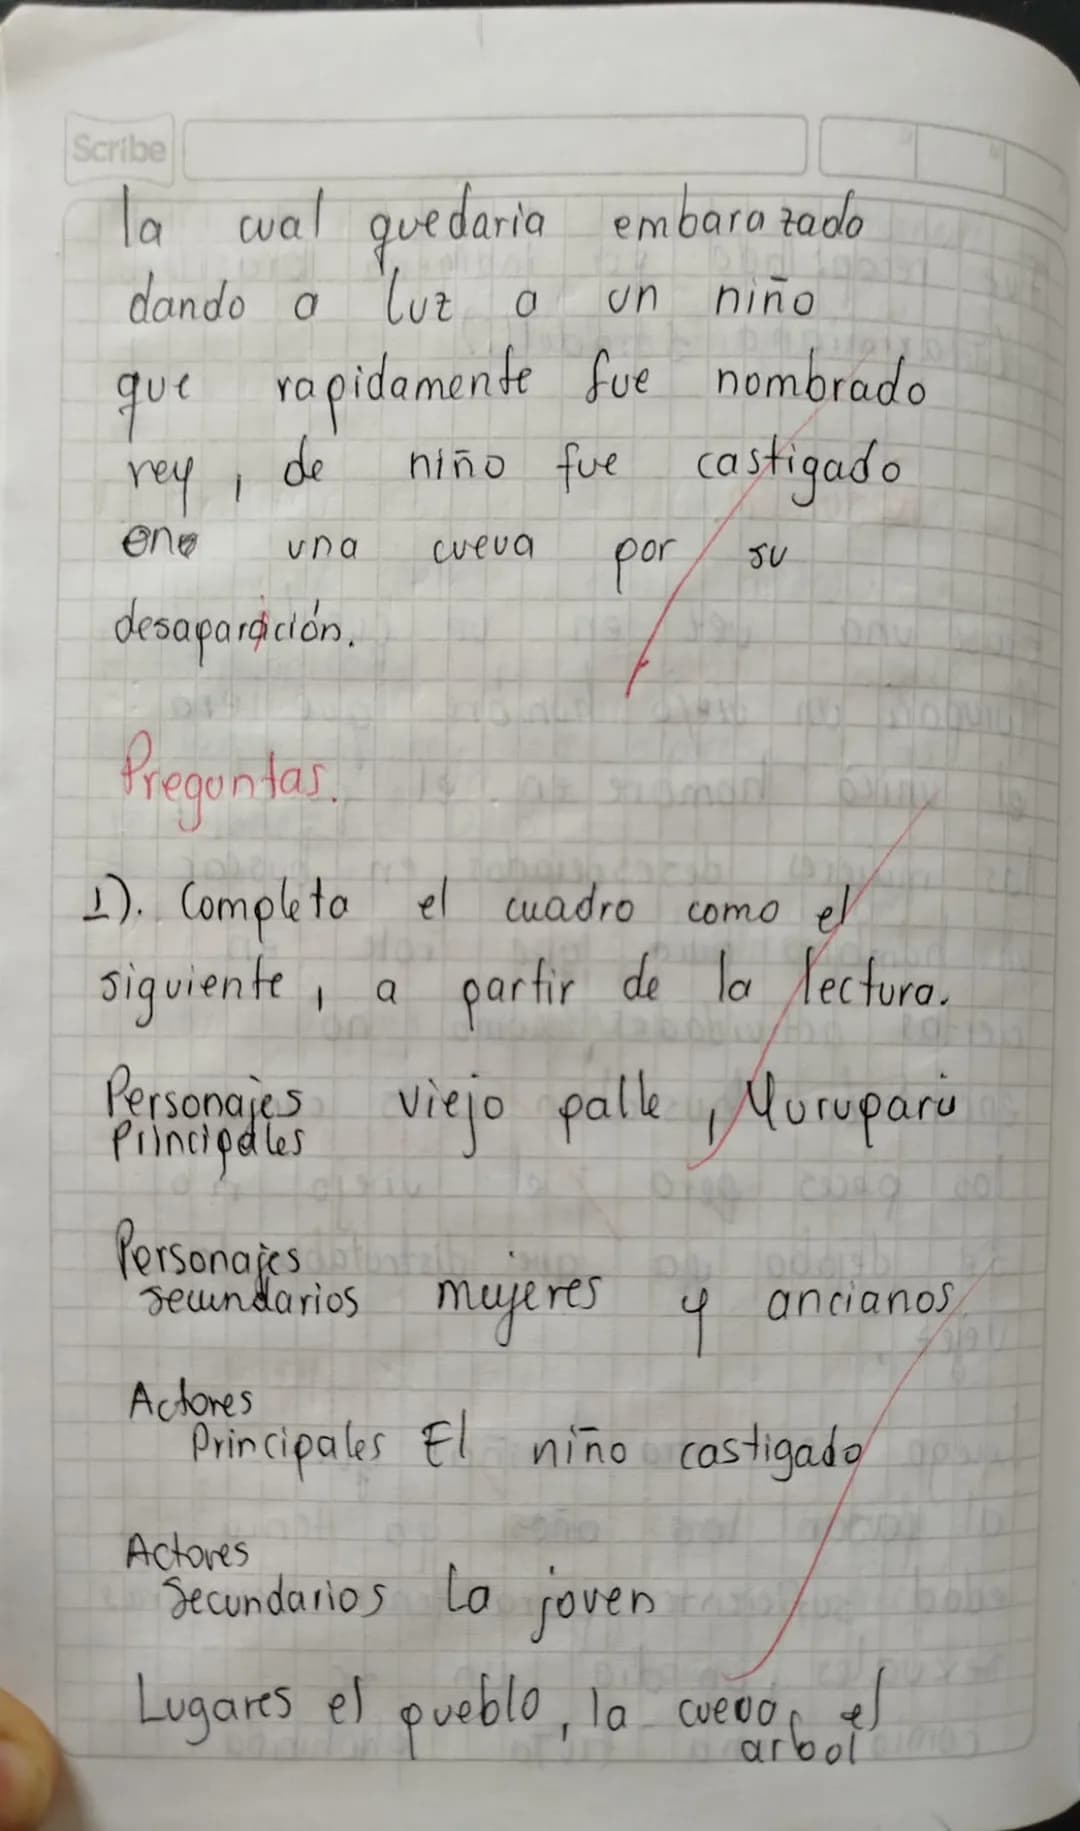 Scribe
la cual quedaria embarazado
dando a luz a un niño
que rapidamente fue nombrado
rey, de niño fue castigado
en una cueva por su
desaparición.
Preguntas.
1). Completa el cuadro como el
siguiente, a partir de la lectura.
Personajes
Principales viejo palle, Yurupary
Personajes
secundarios mujeres y ancianos
Actores
Principales El niño castigado
Actores
Secundarios La joven
Lugares el pueblo, la cueva, el
arbol